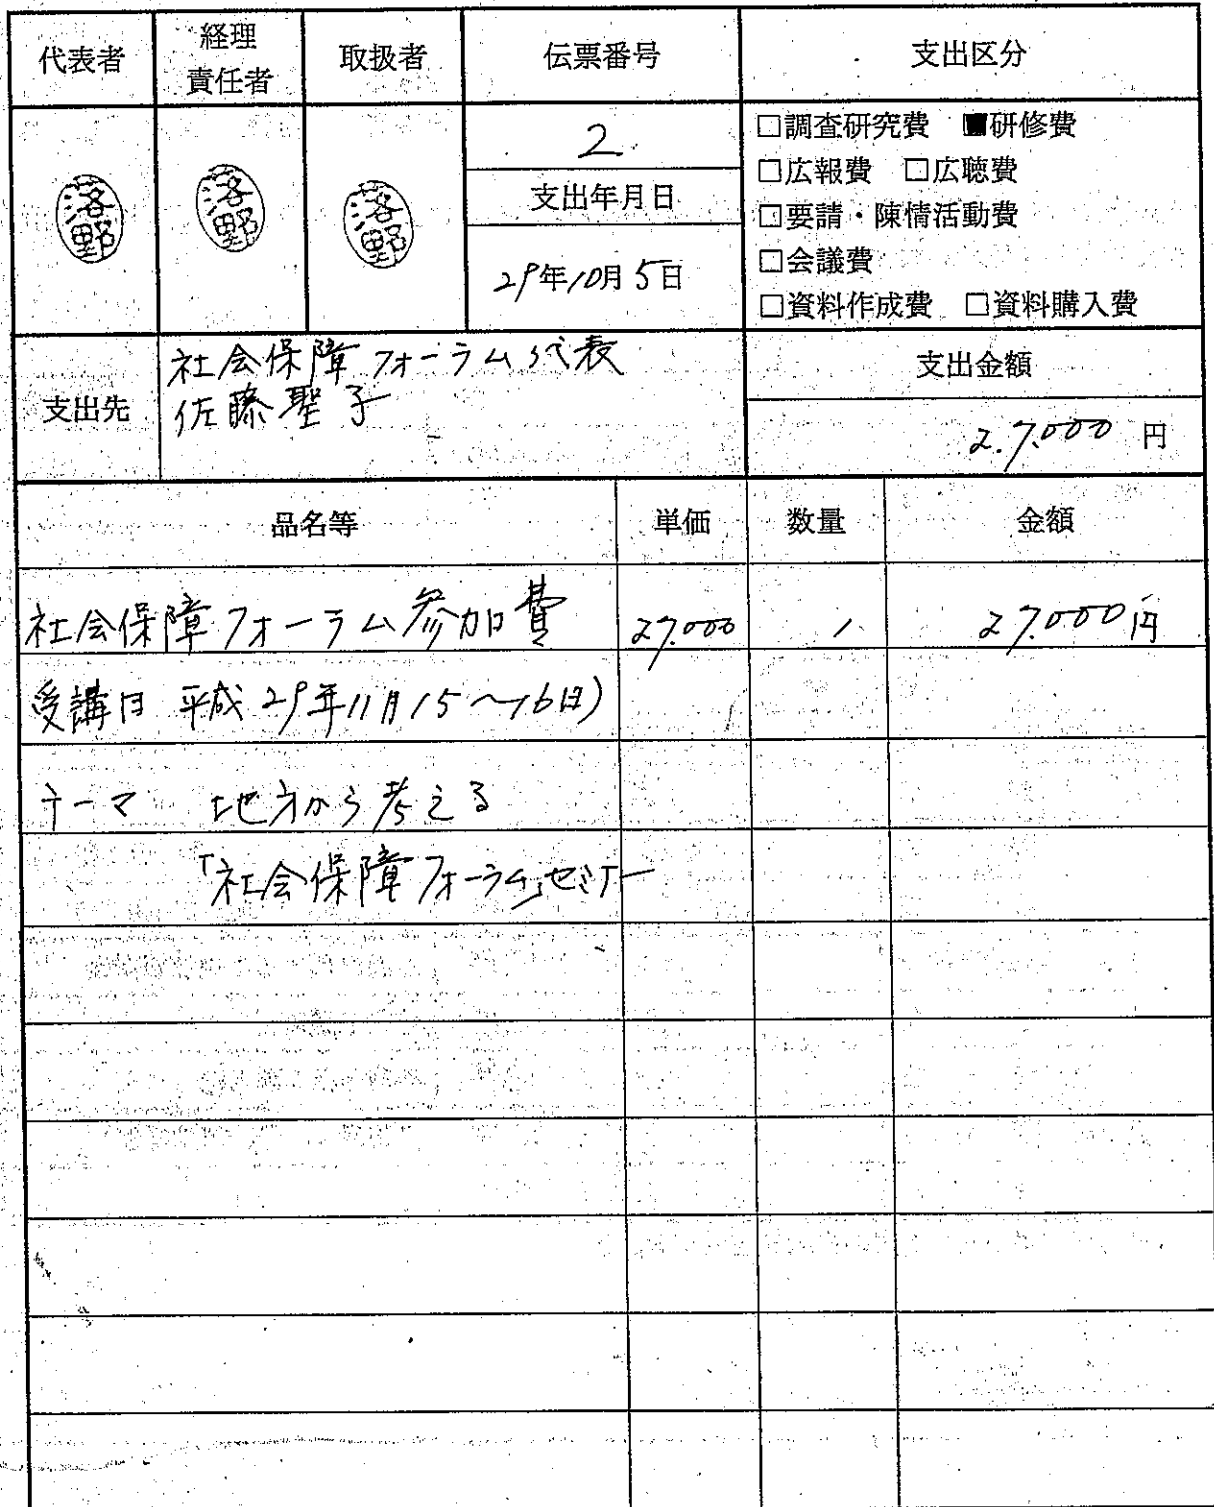 代表者 経理責任者 取扱者 伝票番号 支出区分
落野 落野 落野
2
支出年月日
29年10月5日
□調査研究費 ■研修費
□広報費 □広聴費
□要請・陳情活動費
□会議費
□資料作成費 □資料購入費
支出先
社会保障フォーラム代表
佐藤聖子
支出金額
27.000 円
品名等 単価 数量 金額
社会保障フォーラム参加費 27.000 1 27.000円
受講日 平成29年11月15〜16日)
テーマ 地方から考える
「社会保障フォーラム」セミナー